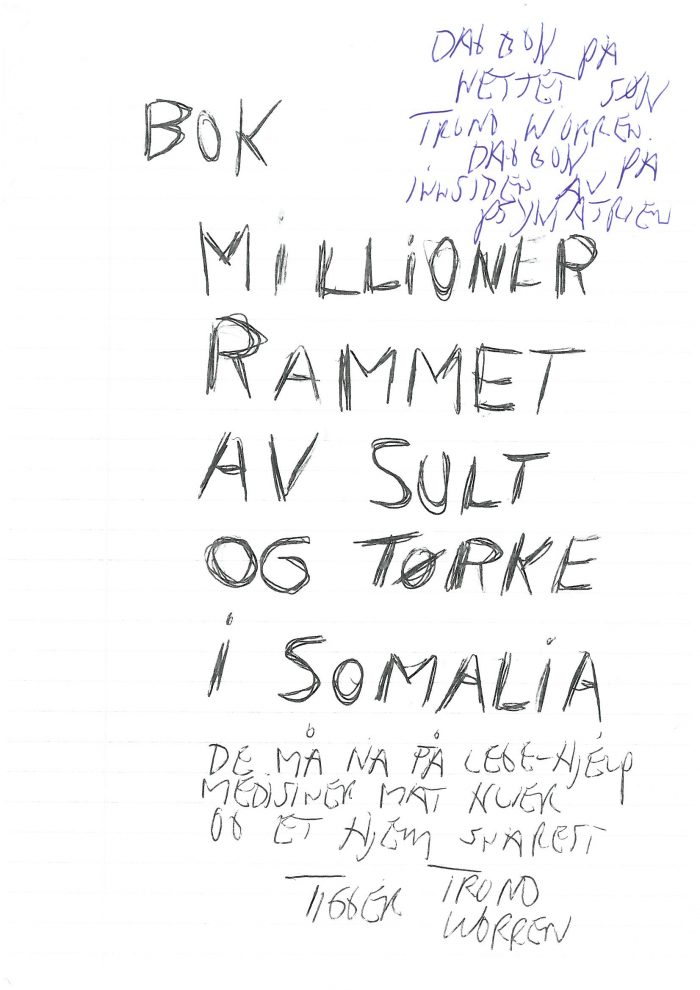 DAGBON PÅ
NETTET SØN
TROND WORREN.
DAGBON PÅ
INNSIDEN AV
BOK
MILLIONER
RAMMET
AV SULT
OG TØRKE
i SOMALIA
DE MÅ NA PÅ LEGE-HJELP
MEDISINER MAT KLÆR
OG ET HJEM SNAREST
TIGGER TROND
WORREN